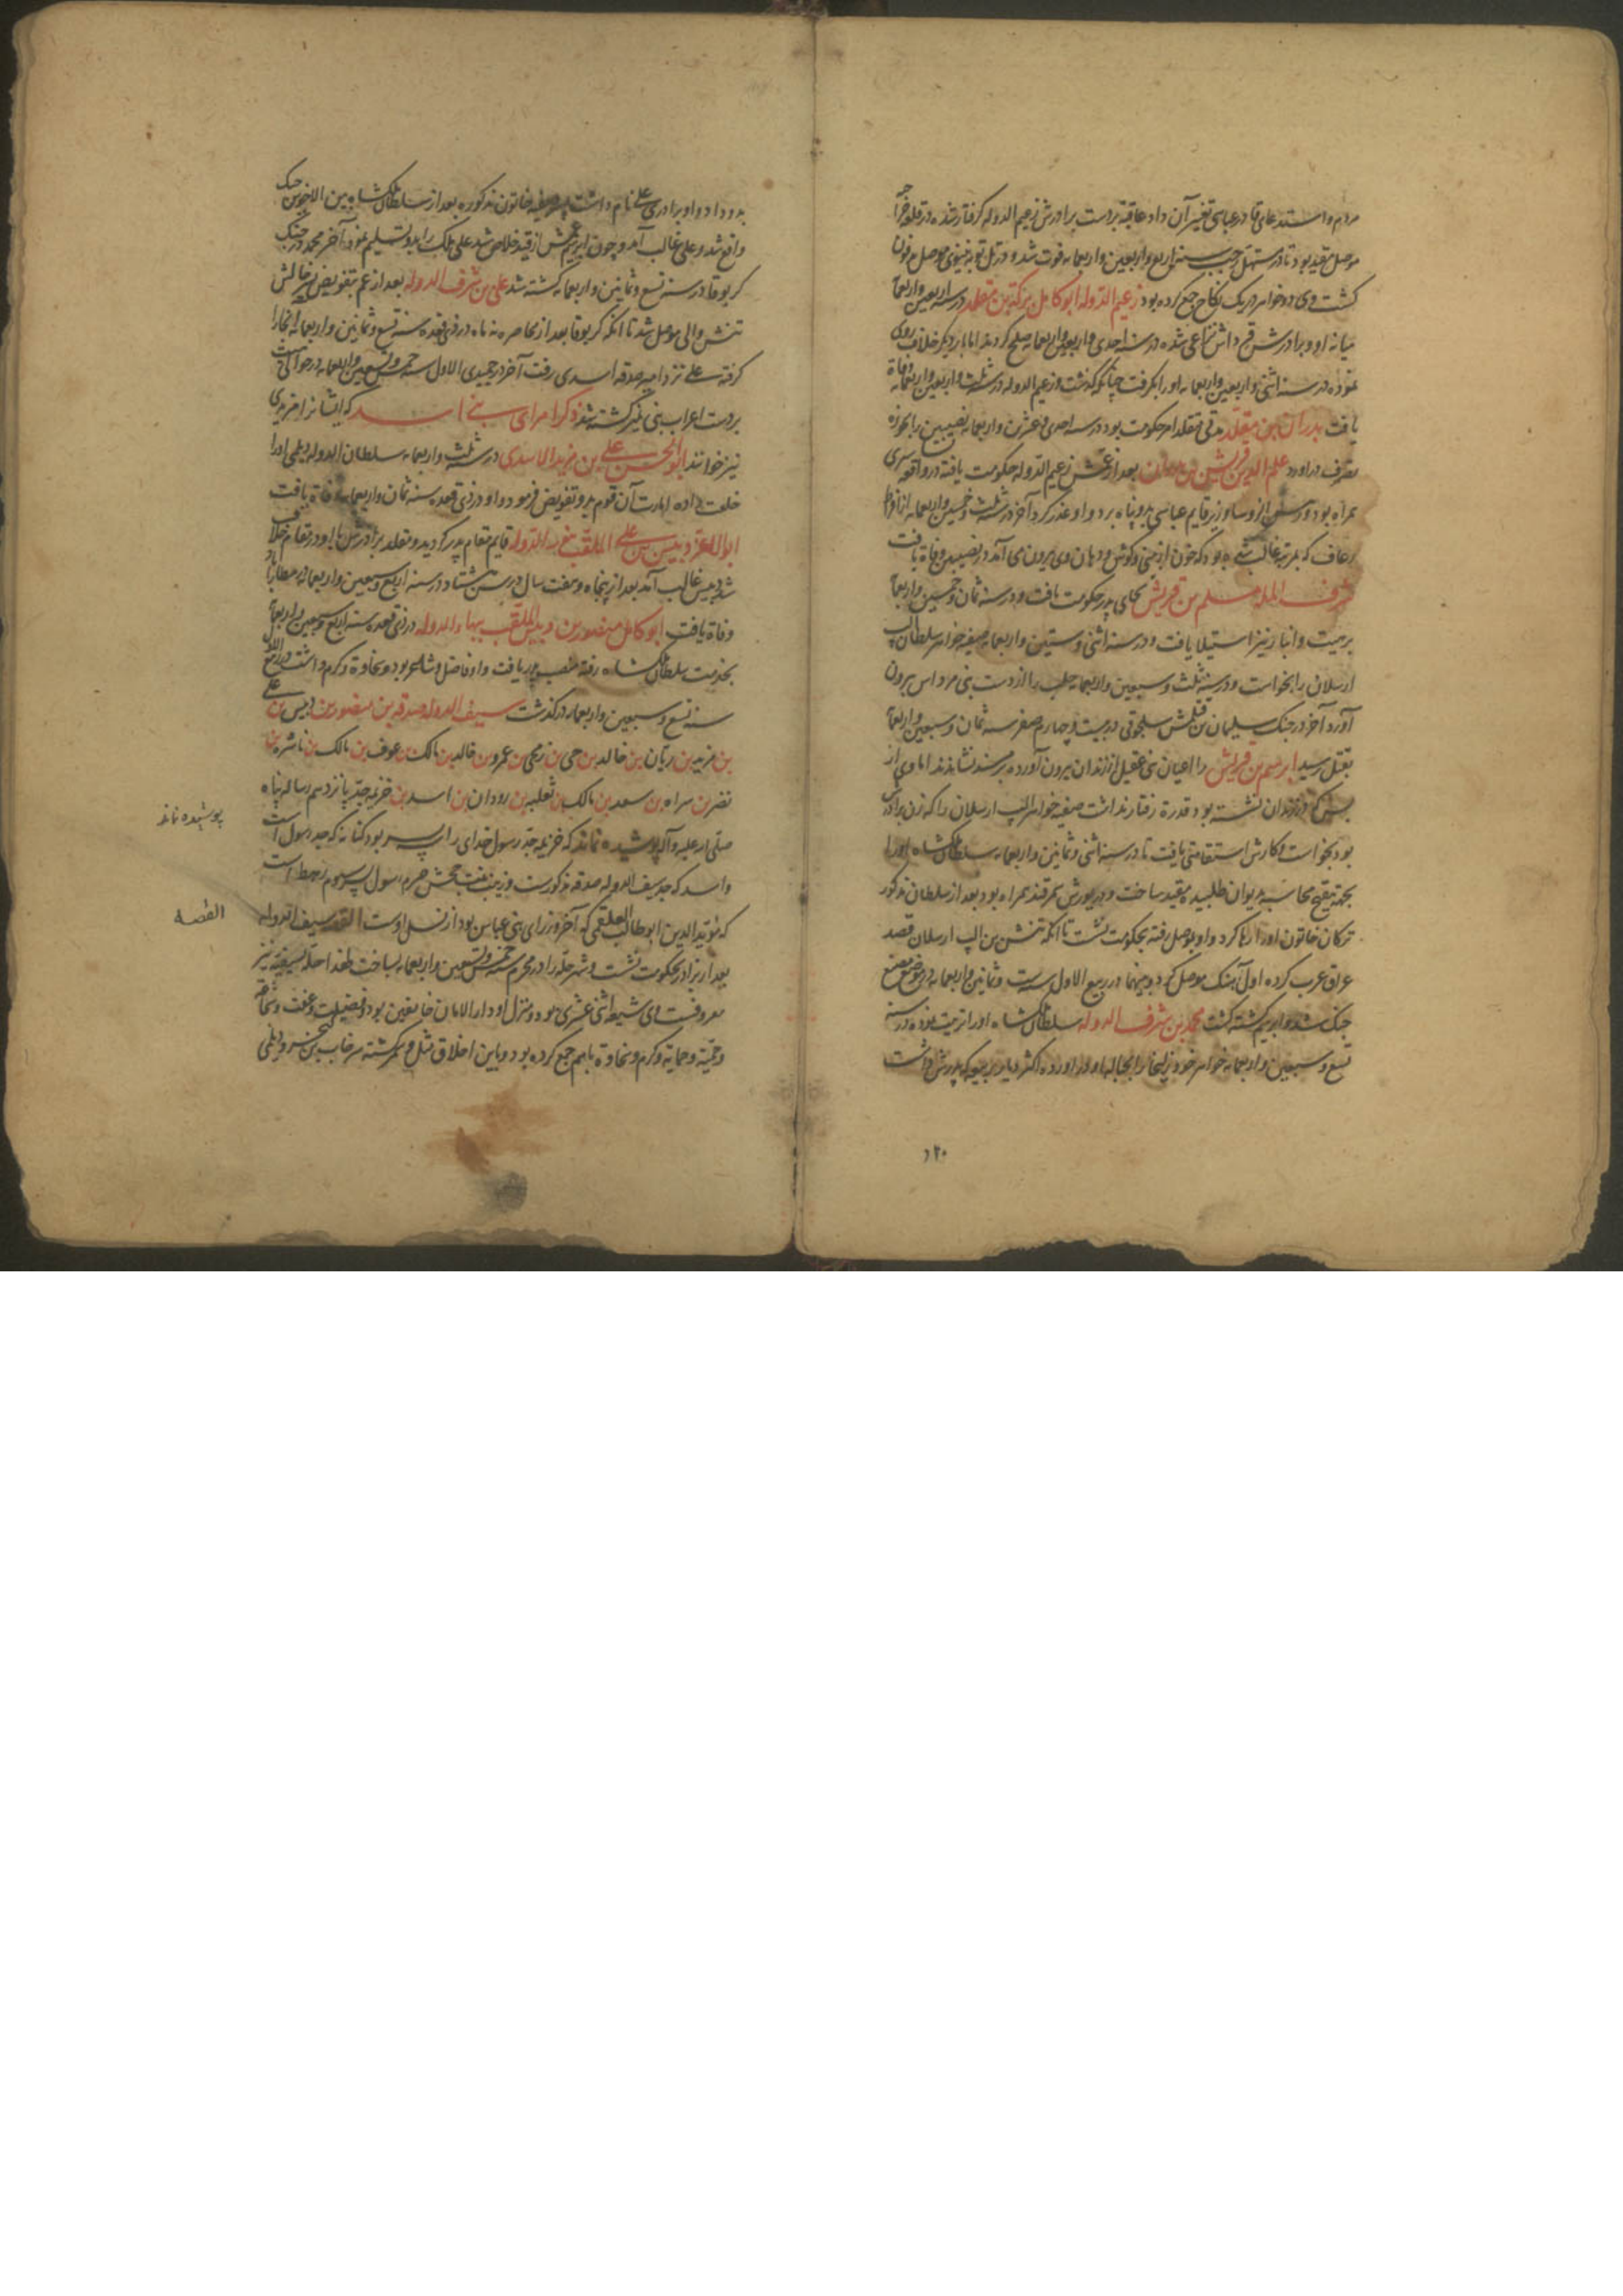 مردم دانستند عاقبت بدست برادرش زعیم الدوله گرفتار شده در قلعه
موصل مقید بود تا در مستهل رجب سنه اربع و اربعین و اربعمایه فوت شد و در تل توبه نینوی موصل مدفون
گشت و وی دو خواهر در یک نکاح جمع کرده بود زعیم الدوله ابوکامل برکة بن مقلد در سنه اربعین و اربعمایه
میانه او و برادرش قرواش نزاعی شده در سنه احدی و اربعین و اربعمایه صلح کردند اما بار دیگر خلاف روی
نموده در سنه اثنی و اربعین و اربعمایه او را بگرفت چنانکه گذشت و زعیم الدوله در سنه ثلث و اربعین و اربعمایه وفاة
یافت بدران بن مقلد مدتی متقلد امر حکومت بود در سنه احدی و عشرین و اربعمایه نصیبین را بحوزه
تصرف درآورد علم الدین قریش بن بدران بعد از عمش زعیم الدوله حکومت یافته در واقعه
همراه بود و رئیس الروسا وزیر قایم عباسی بدو پناه برد و او غدر کرد آخر در سنه ثلث و خمسین و اربعمایه از افراط
رعاف که بمرتبه غالب شده بود که خون از بینی و گوش و دهان وی بیرون می آمد در نصیبین وفاة یافت
شرف الدوله مسلم بن قریش بجای پدر حکومت یافت و در سنه ثمان و خمسین و اربعمایه
بر هیت و انبار نیز استیلا یافت و در سنه اثنی و ستین و اربعمایه صفیه خواهر سلطان الب
ارسلان را بخواست و در سنه ثلث و سبعین و اربعمایه حلب را از دست بنی مرداس بیرون
آورد آخر در جنک سلیمان بن قتلمش سلجوقی در بیست و چهارم صفر سنه ثمان و سبعین و اربعمایه
بقتل رسید ابرهیم بن قریش را اعیان بنی عقیل از زندان بیرون آورده بر مسند نشاندند اما وی از
بس که در زندان نشسته بود قدرة رفتار نداشت صفیه خواهر الب ارسلان را که زن برادرش
بود بخواست و کارش استقامتی یافت تا در سنه اثنی و ثمانین و اربعمایه سلطان ملکشاه او را
بجهة تنقیح محاسبه بدیوان طلبیده مقید ساخت و در یورش سمرقند همراه بود بعد از سلطان مذکور
ترکان خاتون او را رها کرد و او بموصل رفته بحکومت نشست تا انکه تتش بن الب ارسلان قصد
عراق عرب کرده اول آهنک موصل کرد و بینهما در ربیع الاول سنه ست و ثمانین و اربعمایه در موضع مضیع
جنک شد و ابرهیم کشته گشت محمد بن شرف الدوله سلطان ملکشاه او را تربیت نموده در سنه
تسع و سبعین و اربعمایه خواهر خود زلیخا را بحباله او درآورده اکثر دیار ربیعه که پدرش داشت
۲۰
بدو داد و او برادری علی نام داشت پسر صفیه خاتون مذکوره بعد از سلطان ملکشاه بین الاخوین جنک
واقع شد و علی غالب آمد و چون ابرهیم عمش از قید خلاص شد علی ملک را بدو تسلیم نمود آخر محمد در جنک
کربوقا در سنه تسع و ثمانین و اربعمایه کشته شد علی بن شرف الدوله بعد از عم بتفویض پسر خالش
تتش والی موصل شد تا انکه کربوقا بعد از محاصره نه ماه در ذی قعده سنه تسع و ثمانین و اربعمایه انجا را
گرفته علی نزد امیر صدقه اسدی رفت آخر در جمیدی الاول سنه خمس و تسعین و اربعمایه در حوالی هیت
بردست اعراب بنی نمیر کشته شد ذکر امرای بنی اسد که ایشانرا مزیدی
نیز خوانند ابوالحسن علی بن مزید الاسدی در سنه ثلث و اربعمایه سلطان الدوله دیلمی او را
خلعت داده امارت آن قوم بدو تفویض فرمود و او در ذی قعده سنه ثمان و اربعمایه وفاة یافت
ابوالاعز دبیس بن علی الملقب بنور الدوله قایم مقام پدر گردید و مقلد برادرش با او در مقام خلاف
شد دبیس غالب آمد بعد از پنجاه و هفت سال در سن هشتاد در سنه اربع و سبعین و اربعمایه بمطاراباد
وفاة یافت ابوکامل منصور بن دبیس الملقب ببهاء الدوله در ذی قعده سنه اربع و سبعین و اربعمایه
بخدمت سلطان ملکشاه رفته منصب پدر یافت و او فاضل و شاعر بود و سخاوة و کرم داشت در ربیع الاول
سنه تسع و سبعین و اربعمایه درگذشت سیف الدوله صدقه بن منصور بن دبیس بن علی
بن مزید بن ریان بن خالد بن حی بن زنجی بن عمرو بن خالد بن مالک بن عوف بن مالک بن ناشره بن
نصر بن سراه بن سعد بن مالک بن ثعلبه بن رودان بن اسد بن خزیمه جد پانزدهم رسالة پناه
صلی الله علیه و آله پوشیده نماند که خزیمه جد رسول خدای را پسر بود کنانه که جد رسول است
و اسد که جد سیف الدوله صدقه مذکورست و زینب بنت جحش حرم رسول پسر سوم رهط است
که مؤید الدین ابوطالب العلقمی که آخر وزرای بنی عباس بود از نسل اوست القصه سیف الدوله
بعد از پدر بحکومت نشست و شهر حله را در محرم سنه خمس و تسعین و اربعمایه بساخت لهذا حله سیفیه نیز
معروفست وی شیعه اثنی عشری بود و منزل او دار الامان خایفین بود و فضیلت و عفت و شجاعة
و حمیة و حمایة و کرم و سخاوة باهم جمع کرده بود و باین اخلاق مثل و سمر گشته سرخاب بن کیخسرو دیلمی
پوشیده نماند
القصه